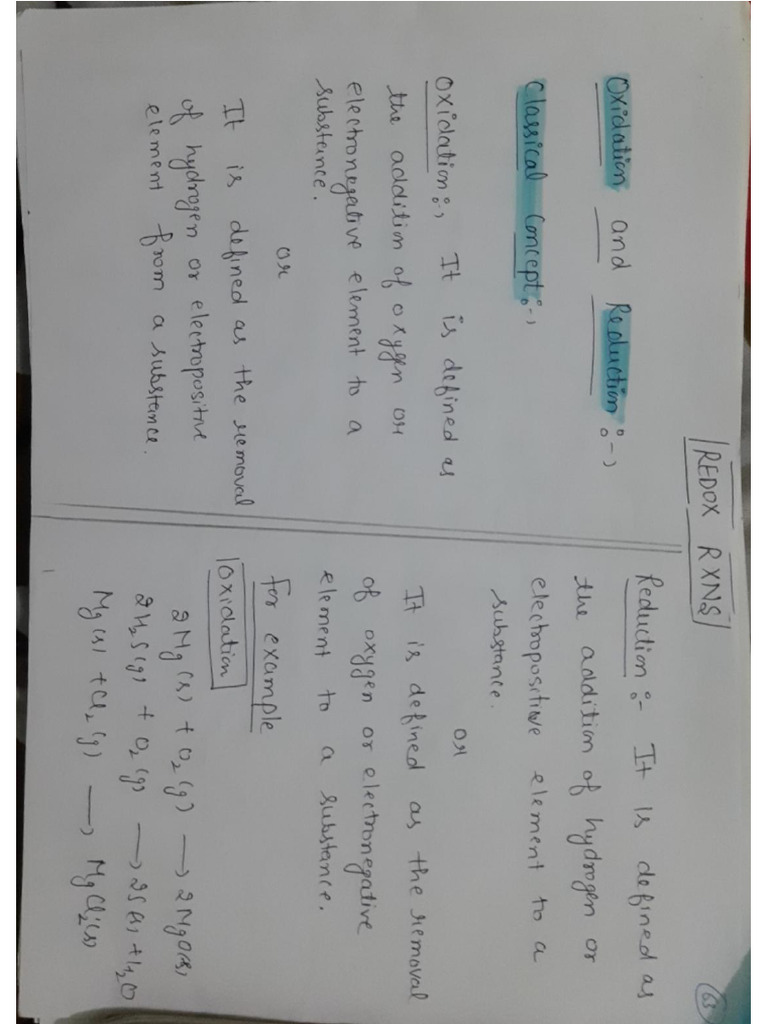 REDOX RXNS
63
Oxidation and Reduction :-)
Classical Concept :-)
Oxidation :- It is defined as
the addition of oxygen or
electronegative element to a
substance.
or
It is defined as the removal
of hydrogen or electropositive
element from a substance.
Reduction :- It is defined as
the addition of hydrogen or
electropositive element to a
substance.
or
It is defined as the removal
of oxygen or electronegative
element to a substance.
for example
Oxidation
2Mg(s) + O2(g) → 2MgO(s)
2H2S(g) + O2(g) → 2S(s) + H2O
Mg(s) + Cl2(g) → MgCl2(s)